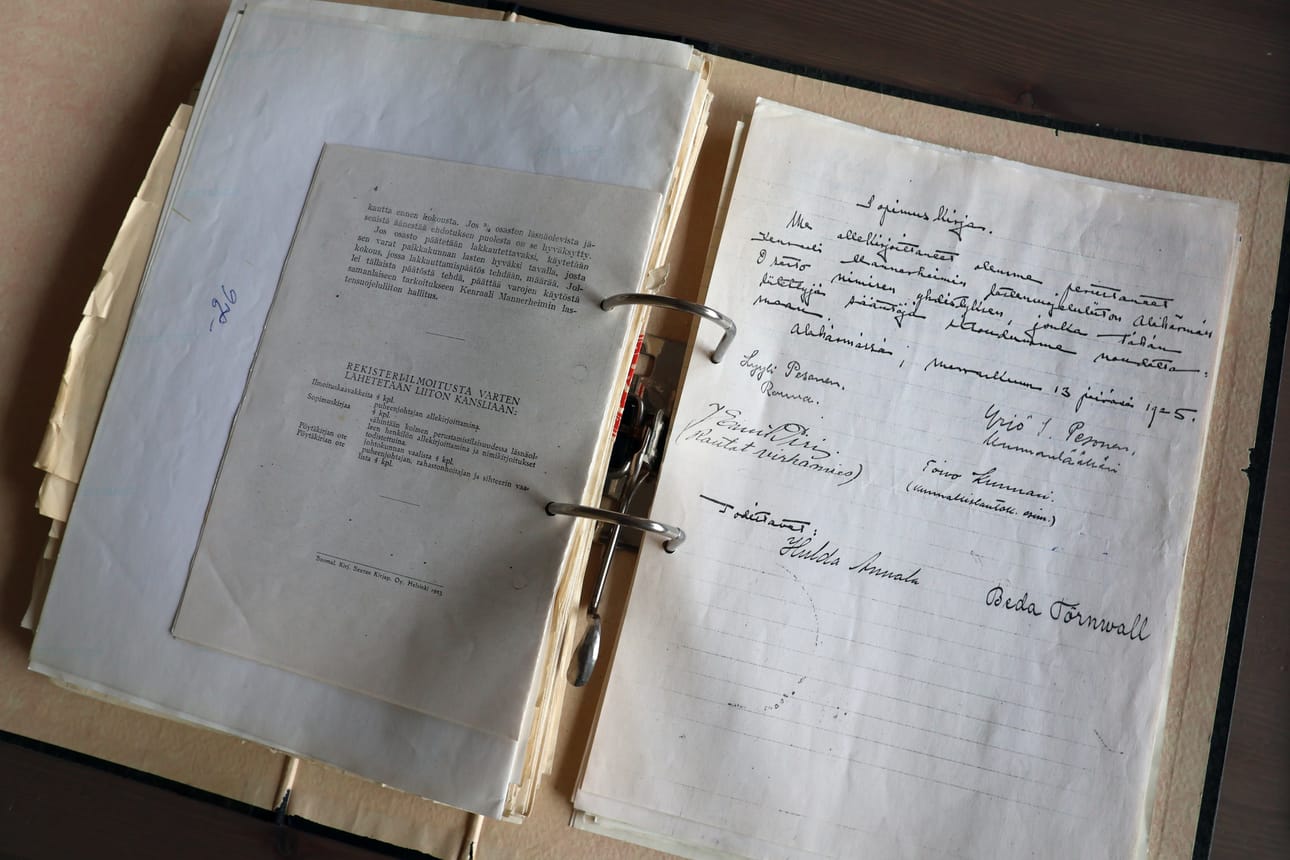 4
kautta ennen kokousta. Jos ¾ osasten läsnäolevista jä-
senistä äänestää ehdotuksen puolesta on se hyväksytty.
Jos osasto päätetään lakkautettavaksi, käytetään
sen varat paikkakunnan lasten hyväksi tavalla, josta
kokous, jossa lakkauttamispäätös tehdään, määrää. Jol-
lei tällaista päätöstä tehdä, päättää varojen käytöstä
samanlaiseen tarkoitukseen Kenraali Mannerheimin las-
tensuojeluliiton hallitus.
REKISTERI-ILMOITUSTA VARTEN
LÄHETETÄÄN LIITON KANSLIAAN:
Ilmoituskaavakkeita 4 kpl.
puheenjohtajan allekirjoittamina.
Sopimuskirjaa 4 kpl.
vähintään kolmen perustamistilaisuudessa läsnäol-
leen henkilön allekirjoittamina ja nimikirjoitukset
todistettuina.
Pöytäkirjan ote johtokunnan vaalista 4 kpl.
Pöytäkirjan ote puheenjohtajan, rahastonhoitajan ja sihteerin vaa-
lista 4 kpl.
Suomal. Kirj. Seuran Kirjap. Oy. Helsinki 1923
-26
Sopimuskirja.
Me allekirjoittaneet olemme perustaneet
Kenraali Mannerheimin lastensuojeluliiton Alahärmän
Osasto nimisen yhdistyksen, jonka tähän
liitettyjä sääntöjä sitoudumme noudatta-
maan.
Alahärmässä, marraskuun 13 päivänä 1925.
Lyyli Pesonen.
Rouva.
Yrjö J. Pesonen,
Kunnanlääkäri
(Rautat. virkamies)
Toivo Kunnari.
(kunnallislautak. esim.)
Todistavat:
Hulda Annala
Beda Törnwall